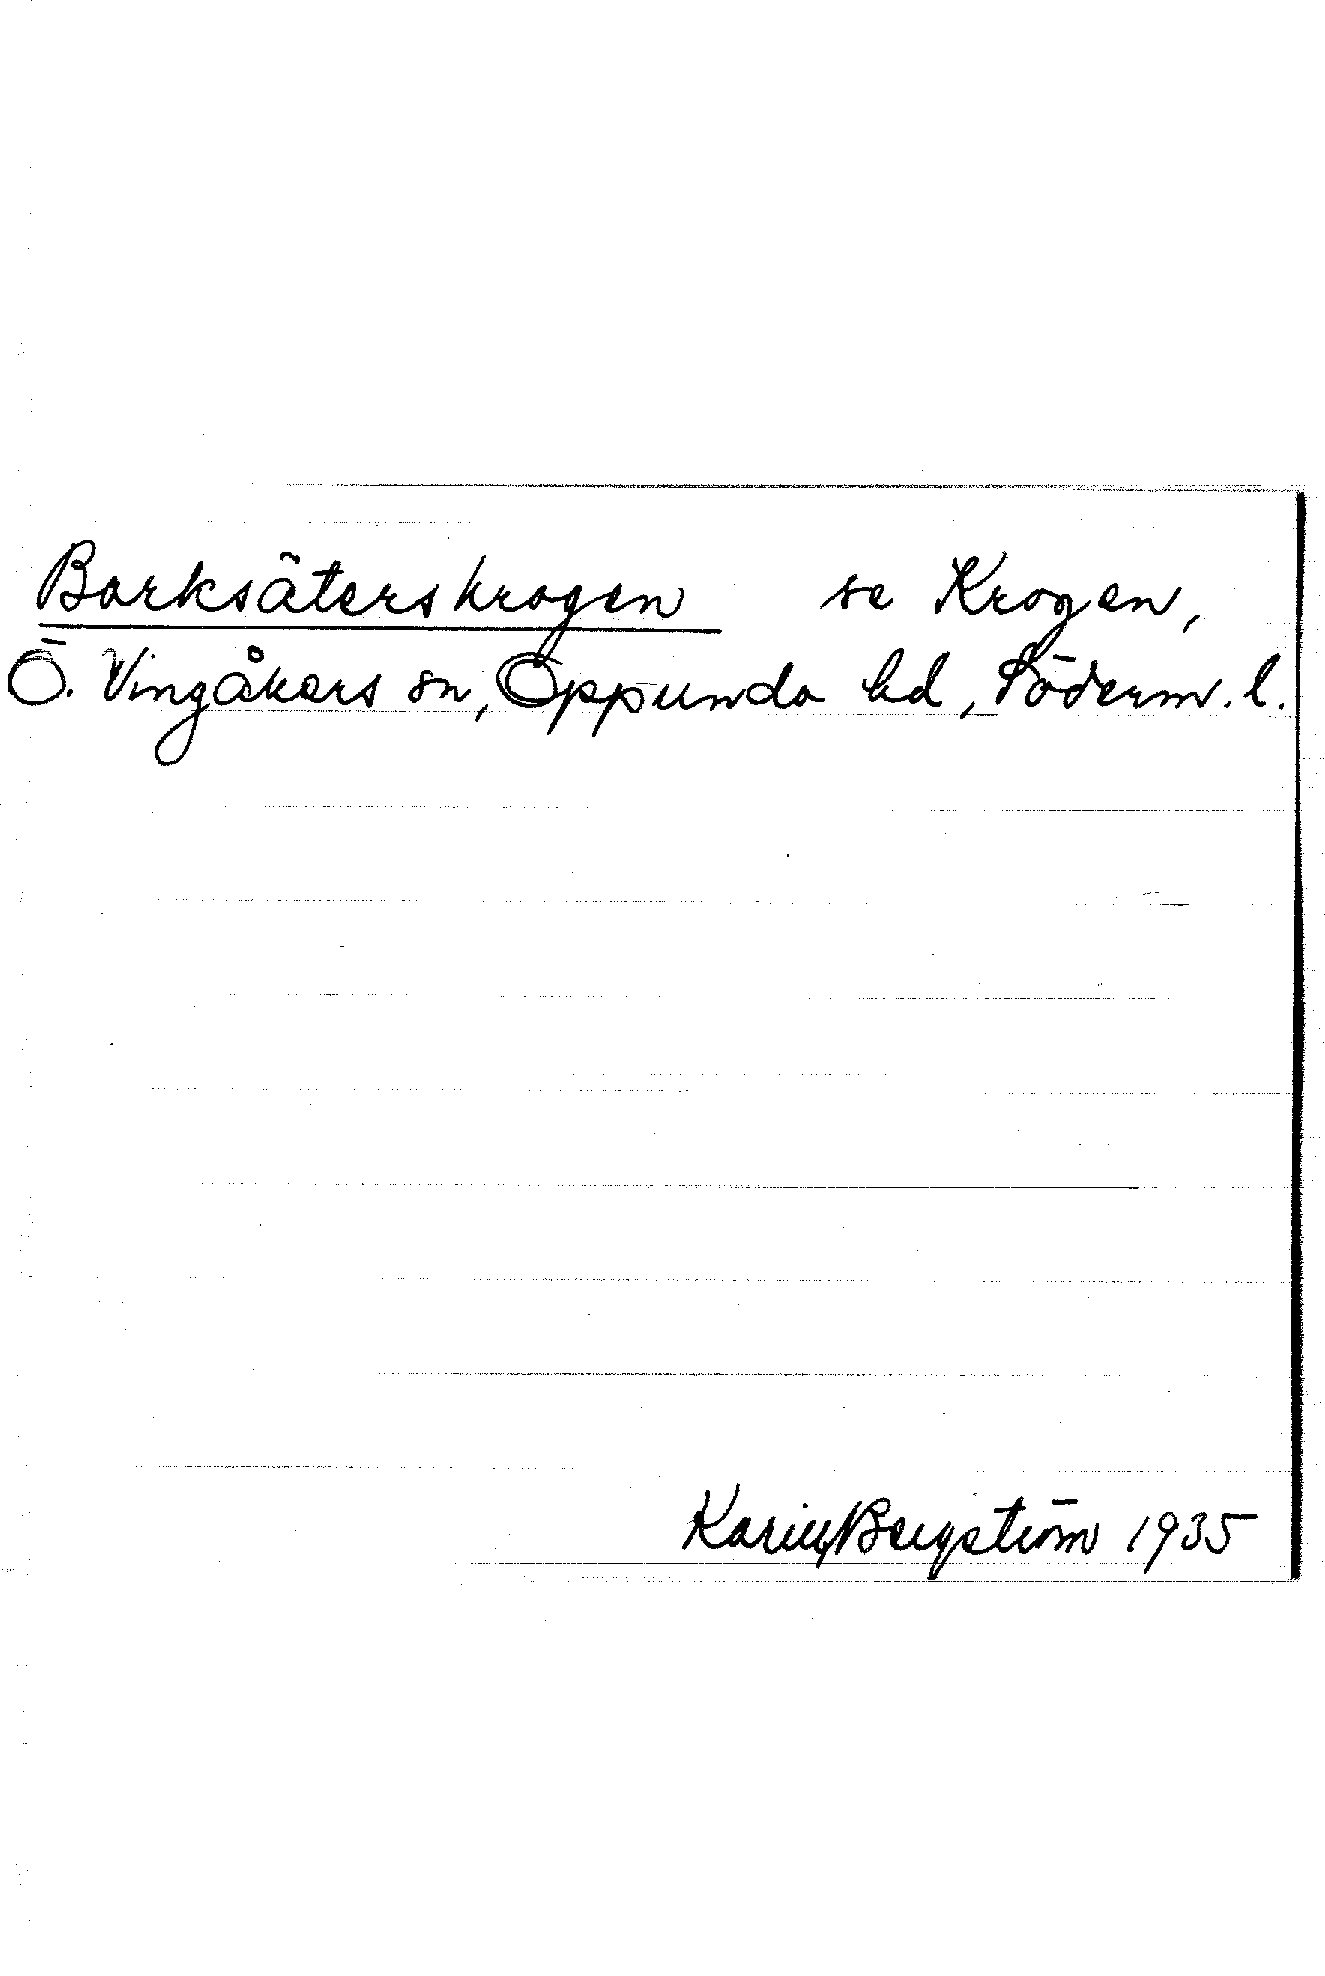 Barksäterskrogen se Krogen,
Ö. Vingåkers sn, Oppunda hd, Söderm. l.
Karin Bergström 1935